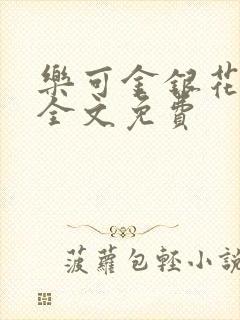 樂可金銀花
全文免費
菠蘿包輕小說